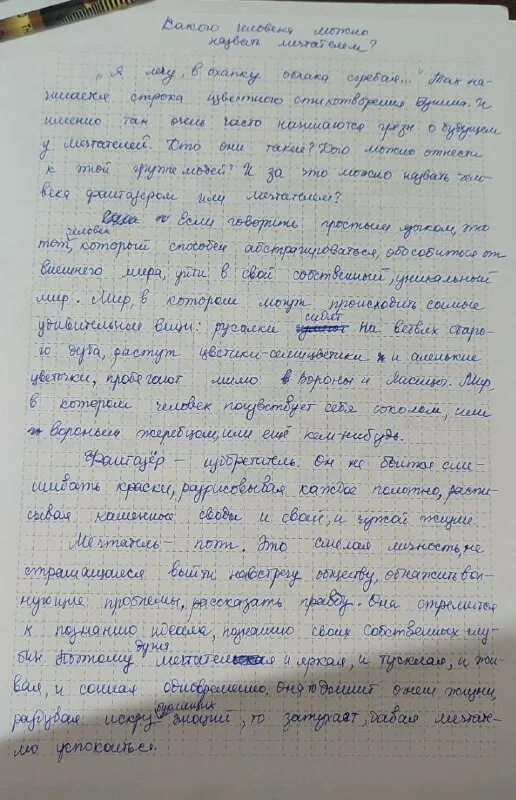 Какого человека можно
назвать мечтателем?
„Я лечу, в охапку облака сгребая..." Так на-
чинается строка известного стихотворения Бунина. И
именно так очень часто начинаются грёзы о будущем
у мечтателей. Кто они такие? Кого можно отнести
к этой группе людей? И за что можно назвать чело-
века фантазёром или мечтателем?
если говорить простым языком, это
тот человек, который способен абстрагироваться, обособиться от
внешнего мира, уйти в свой собственный, уникальный
мир. Мир, в котором могут происходить самые
удивительные вещи: русалки сидят на ветвях старо-
го дуба, растут цветики-семицветики и аленькие
цветочки, пробегают мимо Вороны и Лисицы. Мир,
в котором человек почувствует себя соколом, или
вороным жеребцом, или ещё кем-нибудь.
Фантазёр – изобретатель. Он не боится сме-
шивать краски, разрисовывая каждое полотно, распи-
сывая каменные своды и своей, и чужой жизни.
Мечтатель – поэт. Это смелая личность, не
страшащаяся выйти навстречу обществу, обнажить вол-
нующие проблемы, рассказать правду. Она стремится
к познанию идеала, познанию своих собственных глу-
бин. Поэтому душа мечтателя и яркая, и тусклая, и жи-
вая, и сонная одновременно. Она то дышит огнём жизни,
раздувая искру эмоций, то затухает, давая
успокоиться.